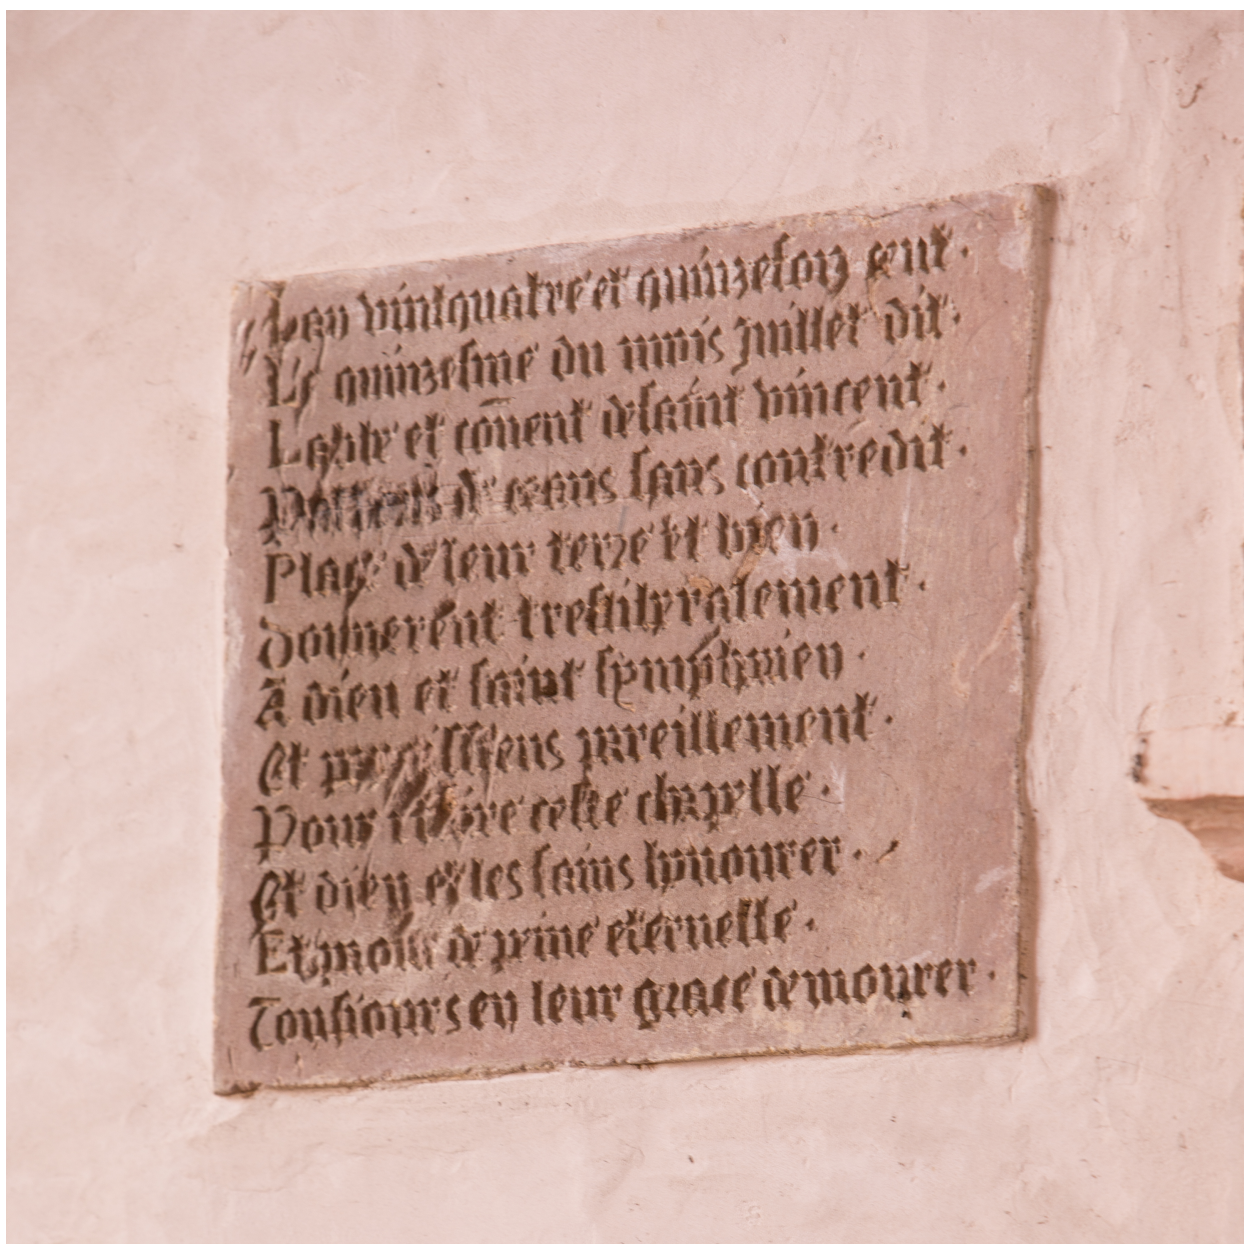 Lan vintquatre et quinzefoiz cent ·
Le quinzesme du mois Juillet dit ·
Labbe et cōuent de saint vincent ·
Patrons de ceans sans contredit ·
Place de leur terre et bien ·
donnerent tresliberalement ·
A dieu et saint symphorien ·
Et parroissiens pareillement ·
Pour faire ceste chapelle ·
Et dieu et les sains honourer ·
Et pour de peine eternelle ·
Tousiours en leur grace demourer ·